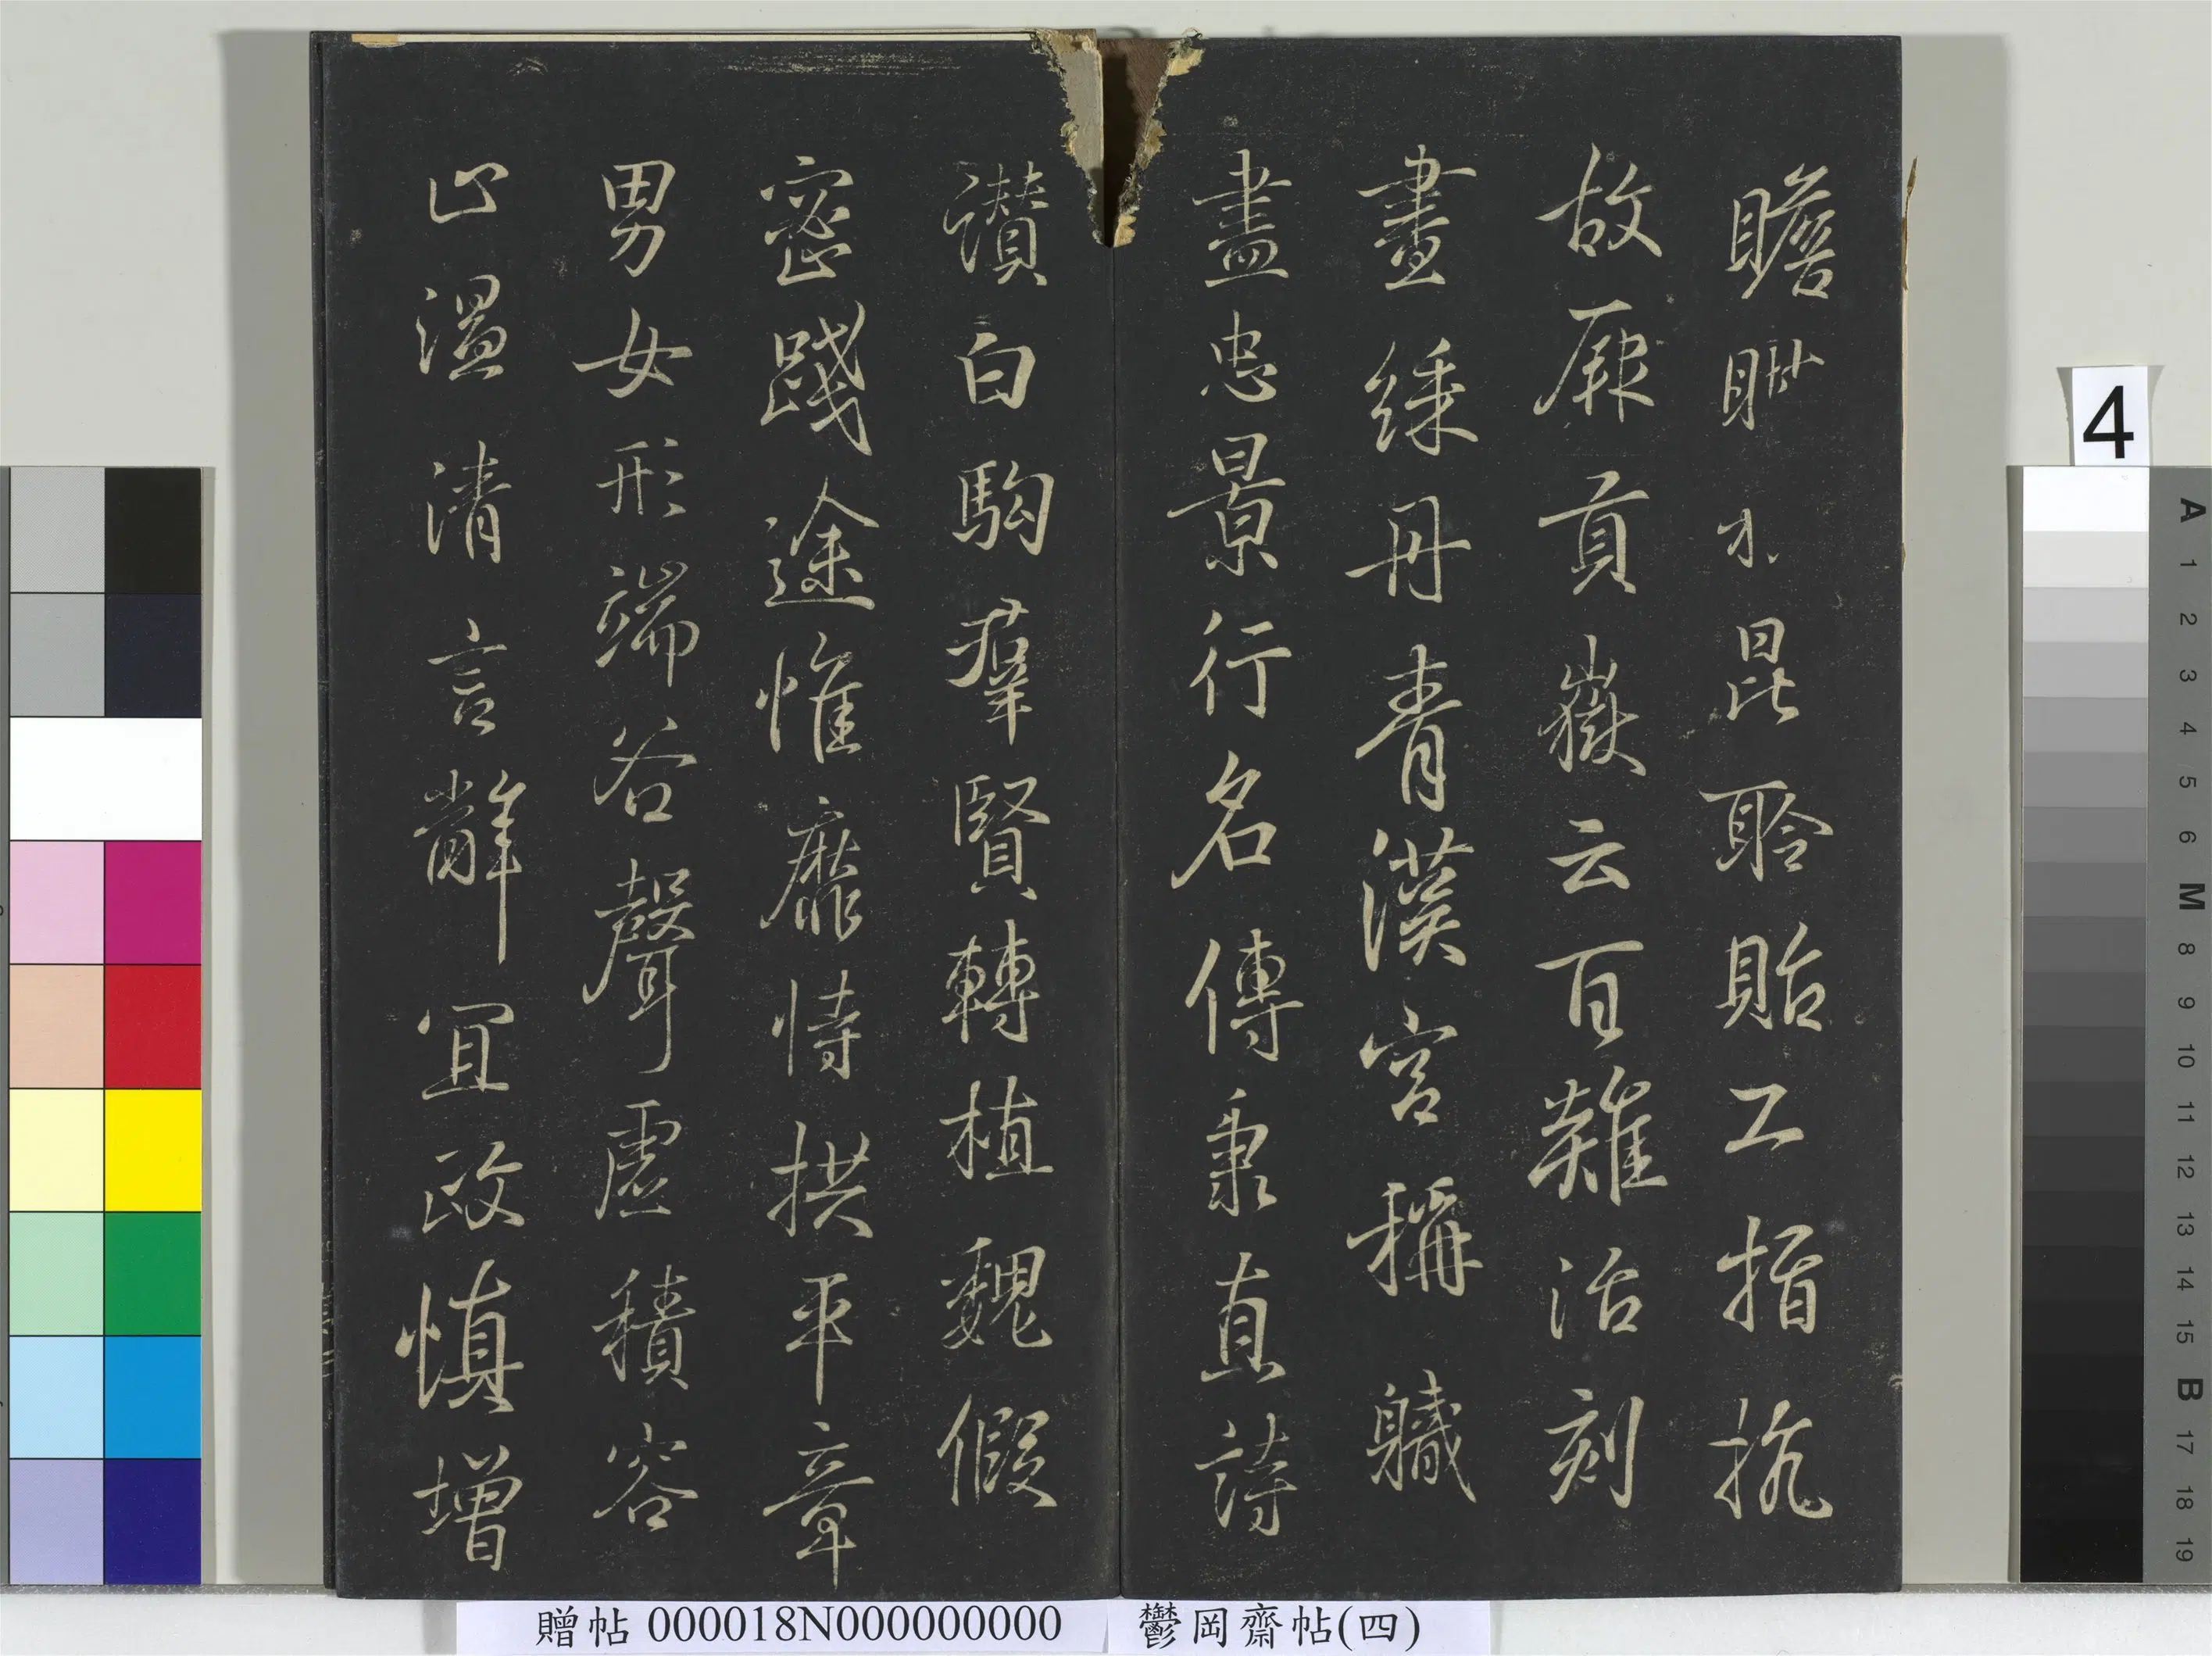 瞻昆聆貽工指執
故厥貢嶽云百治刻
畫綵丹青漢宮稱軄
盡忠景行名傳秉直詩
讚白駒羣賢轉植魏假
密踐途惟靡恃拱平章
男女形端谷聲虛積容
止溫清言辭宜政慎增
贈帖 000018N000000000
鬱岡齋帖(四)
4
A 1 2 3 4 5 6 M 8 9 10 11 12 13 14 15 B 17 18 19